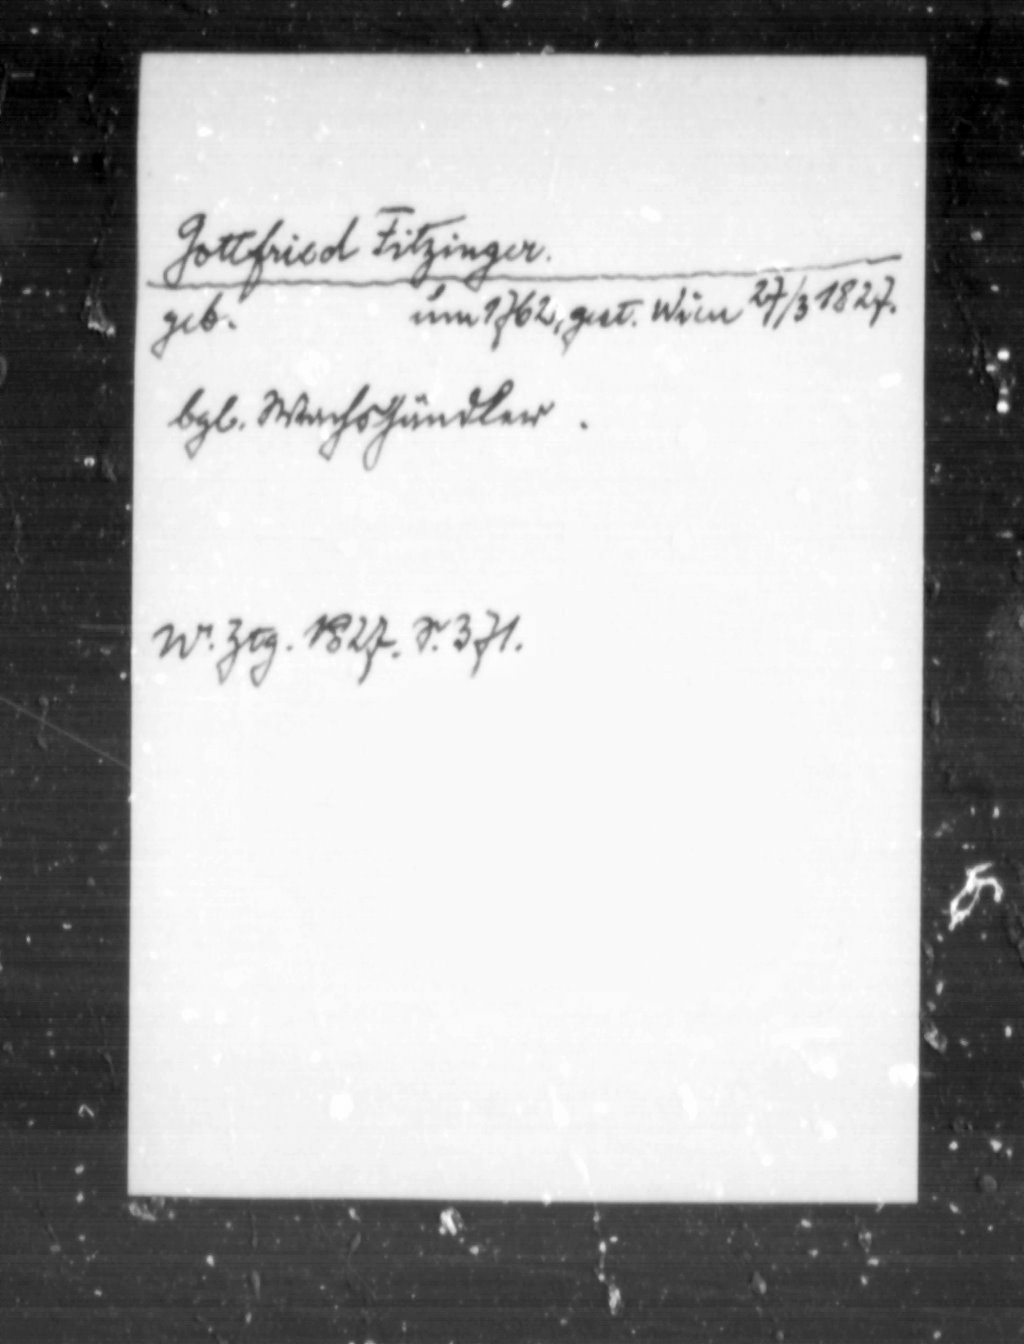 Gottfried Fitzinger.
geb. um 1762, gest. Wien 27/3 1827.
bgl. Wachshändler.
W. Ztg. 1827. S. 371.